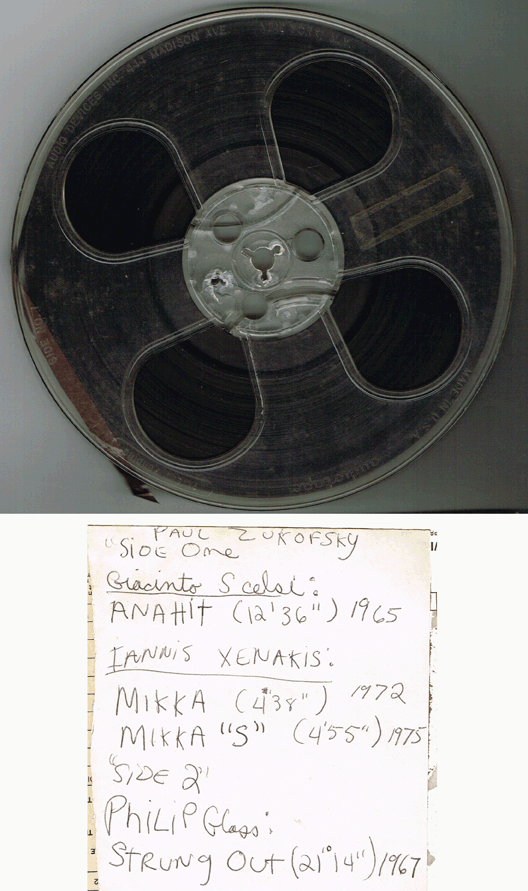 AUDIO DEVICES INC. 444 MADISON AVE.
SIDE NO. 1
MADE IN U.S.A.
audiotape
PAUL ZUKOFSKY
"SIDE One
Giacinto Scelsi:
ANAHIT (12'36") 1965
IANNIS XENAKIS:
MIKKA (4'38") 1972
MIKKA "S" (4'55") 1975
"SIDE 2"
PHiLiP Glass:
STRUNG OUT (21'14") 1967